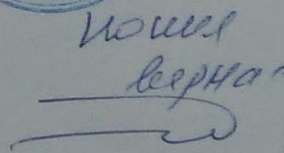 копия
верна